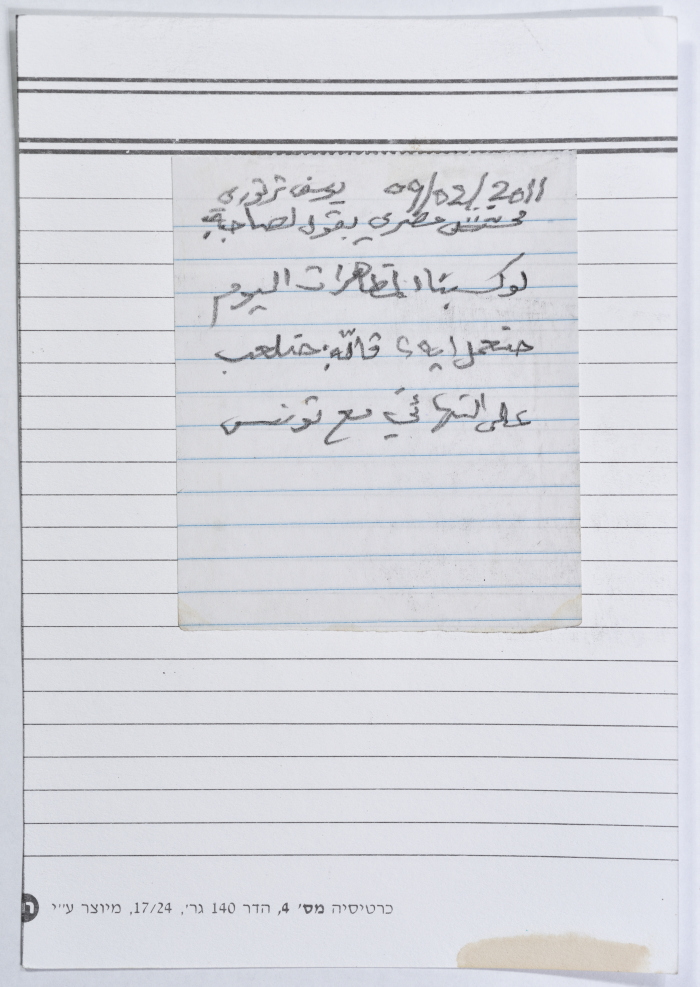 09/02/2011 يوسف ترتوري
محشش مصري بقول لصاحبه
لوك بناد لمظاهرات اليوم
حنعمل ايه؟ قاله: حنلعب
على النهائي مع تونس
כרטיסיה מס׳ 4, הדר 140 גר׳, 17/24, מיוצר ע״י